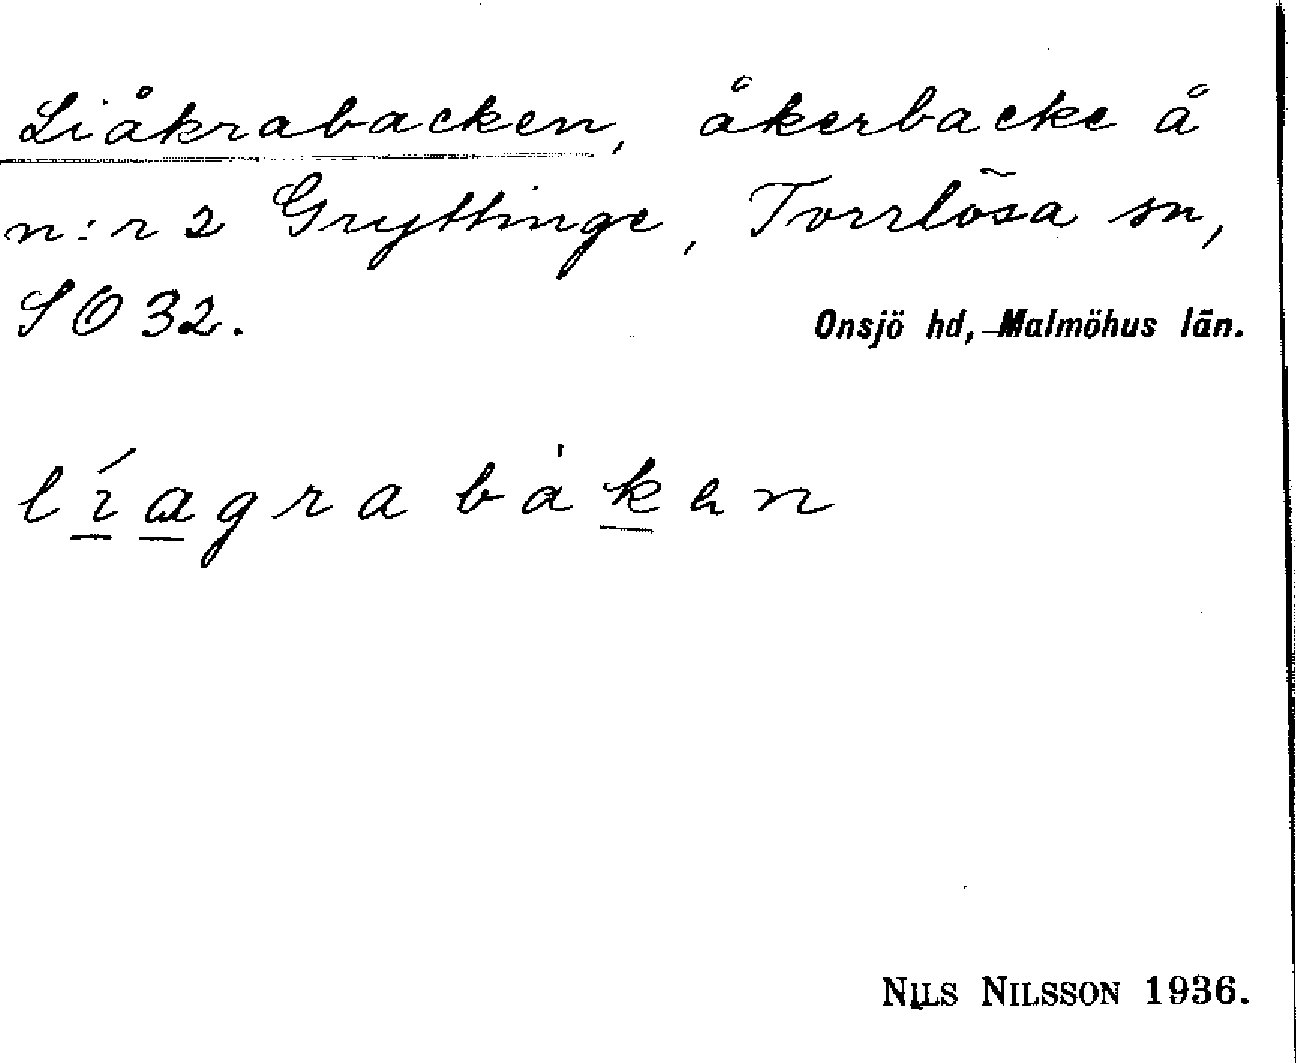 Liåkrabacken, åkerbacke å
n:r 2 Gryttinge, Torrlösa sn,
SO 32.
Onsjö hd, Malmöhus län.
líagra bàken
NILS NILSSON 1936.